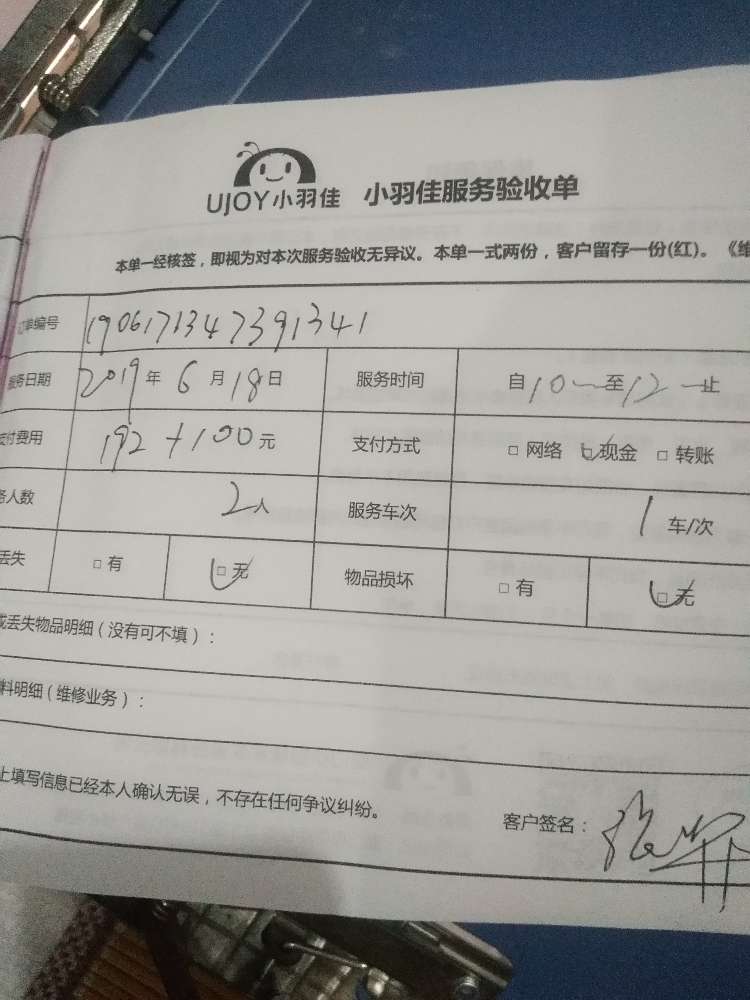 UJOY小羽佳 小羽佳服务验收单
本单一经核签，即视为对本次服务验收无异议。本单一式两份，客户留存一份(红)。《维
订单编号 1906171347391341
服务日期 2019 年 6 月 18 日 服务时间 自 10 至 12 止
支付费用 192+100 元 支付方式 □ 网络 □ 现金 □ 转账
务人数 2人 服务车次 1 车/次
丢失 □ 有 □ 无 物品损坏 □ 有 □ 无
或丢失物品明细（没有可不填）：
料明细（维修业务）：
上填写信息已经本人确认无误，不存在任何争议纠纷。
客户签名：